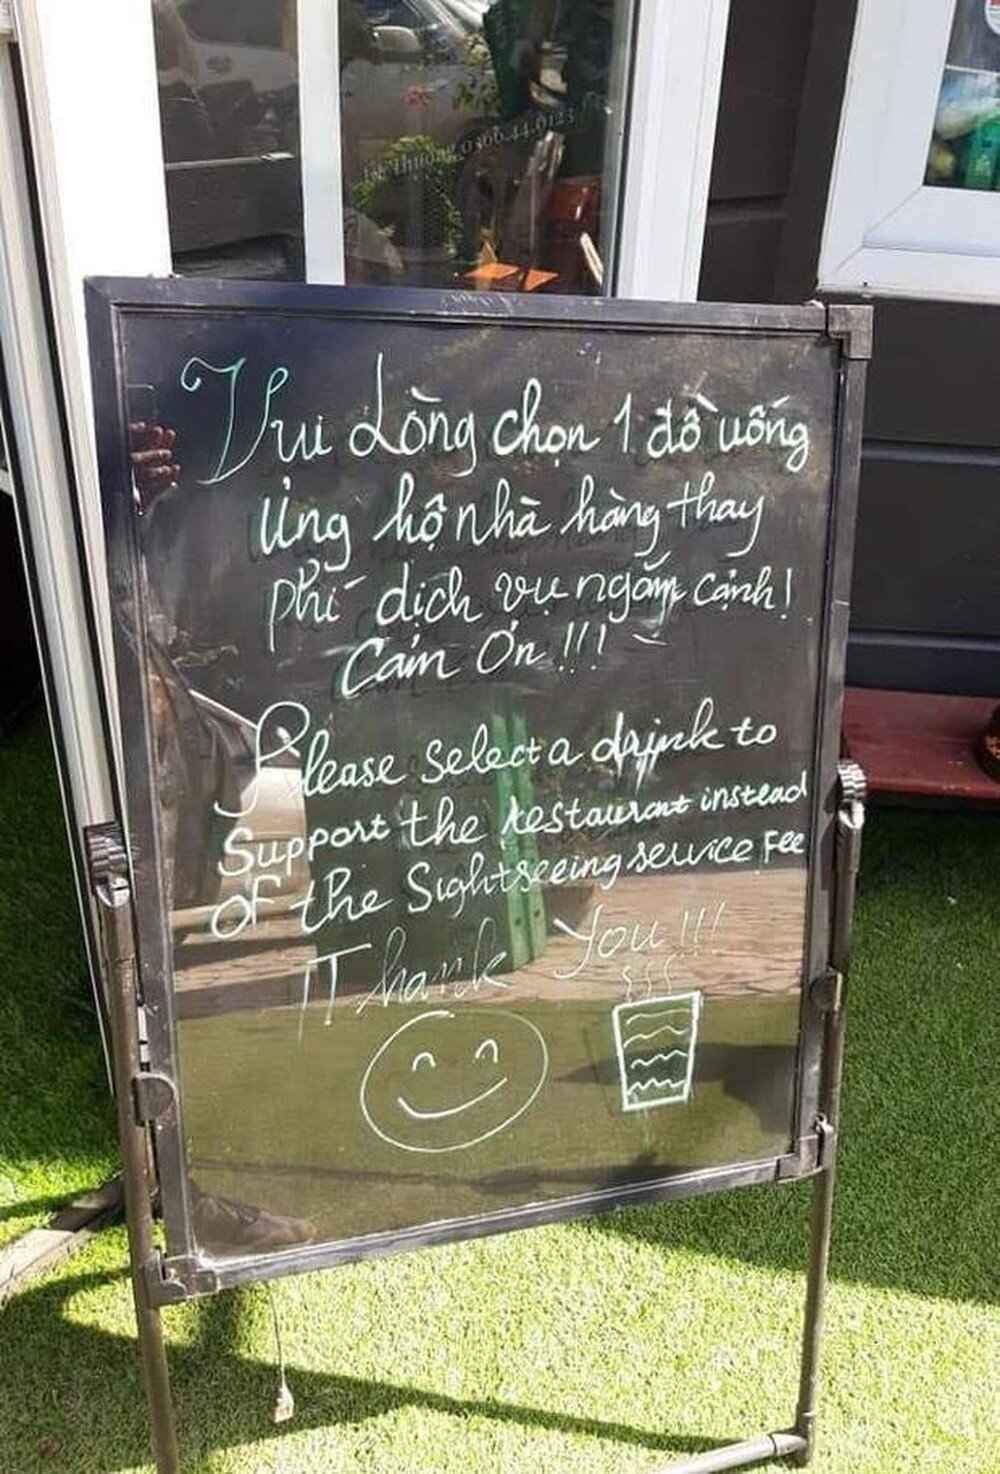 0366.44.0123
Vui Lòng chọn 1 đồ uống
Ủng hộ nhà hàng thay
phí dịch vụ ngắm cảnh!
Cảm Ơn!!!
Please select a drink to
Support the restaurant instead
of the Sightseeing service Fee
Thank You!!!